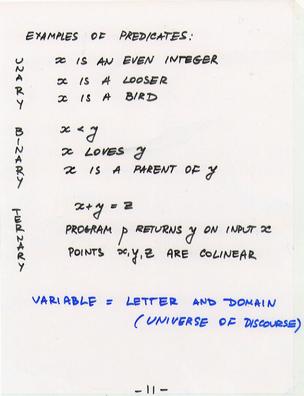 EXAMPLES OF PREDICATES:
UNARY
x IS AN EVEN INTEGER
x IS A LOOSER
x IS A BIRD
BINARY
x < y
x LOVES y
x IS A PARENT OF y
TERNARY
x+y = z
PROGRAM p RETURNS y ON INPUT x
POINTS x,y,z ARE COLINEAR
VARIABLE = LETTER AND DOMAIN
(UNIVERSE OF DISCOURSE)
-11-